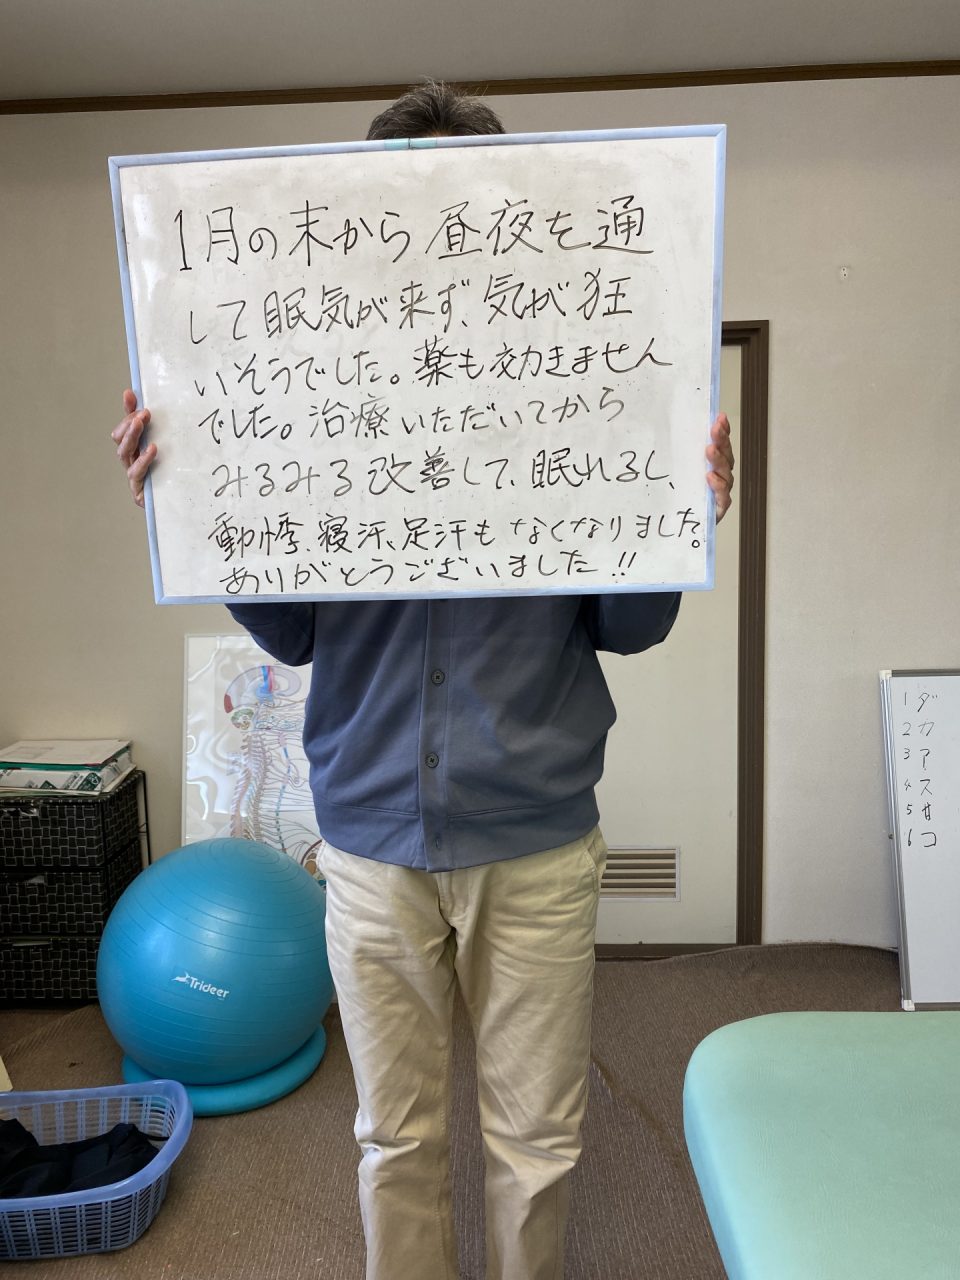 1月の末から昼夜を通
して眠気が来ず、気が狂
いそうでした。薬も効きません
でした。治療いただいてから
みるみる改善して、眠れるし、
動悸、寝汗、足汗もなくなりました。
ありがとうございました!!
Trideer
1 ダ
2 カ
3 ア
4 ス
5 サ
6 コ